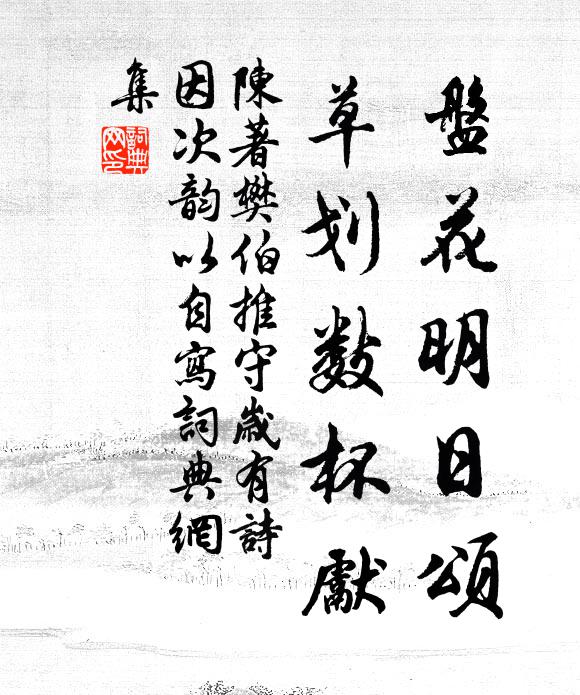 盤花明日頌
草划数杯獻
陳著樊伯推守歲有詩
因次韵以自寫詞典網
集
詞典网印